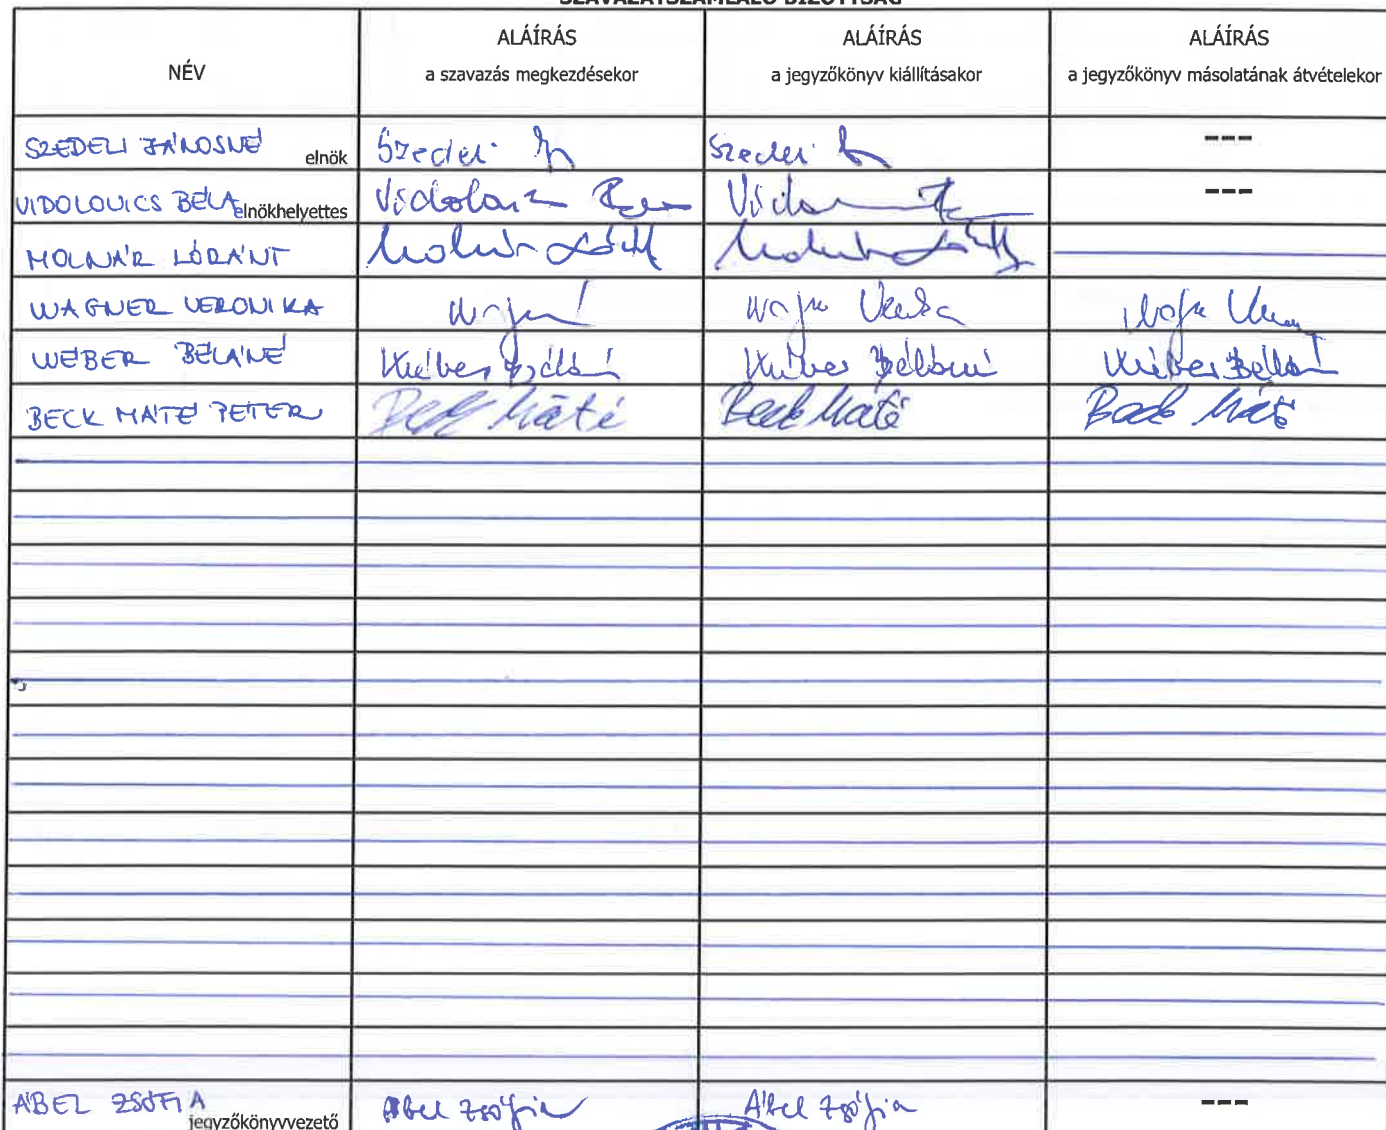 SZAVAZATSZÁMLÁLÓ BIZOTTSÁG
NÉV
ALÁÍRÁS
a szavazás megkezdésekor
ALÁÍRÁS
a jegyzőkönyv kiállításakor
ALÁÍRÁS
a jegyzőkönyv másolatának átvételekor
SZEDELI JÁNOSNÉ elnök Szedeli Szedeli ---
VIDOLOVICS BÉLA elnökhelyettes ---
MOLNÁR LÓRÁNT Molnár Molnár
WAGNER VERONIKA
WÉBER BÉLÁNÉ Wéber Béláné Wéber Béláné Wéber Béláné
BECK MÁTÉ PÉTER Beck Máté Beck Máté Beck Máté
ÁBEL ZSÓFIA jegyzőkönyvvezető Ábel Zsófia Ábel Zsófia ---